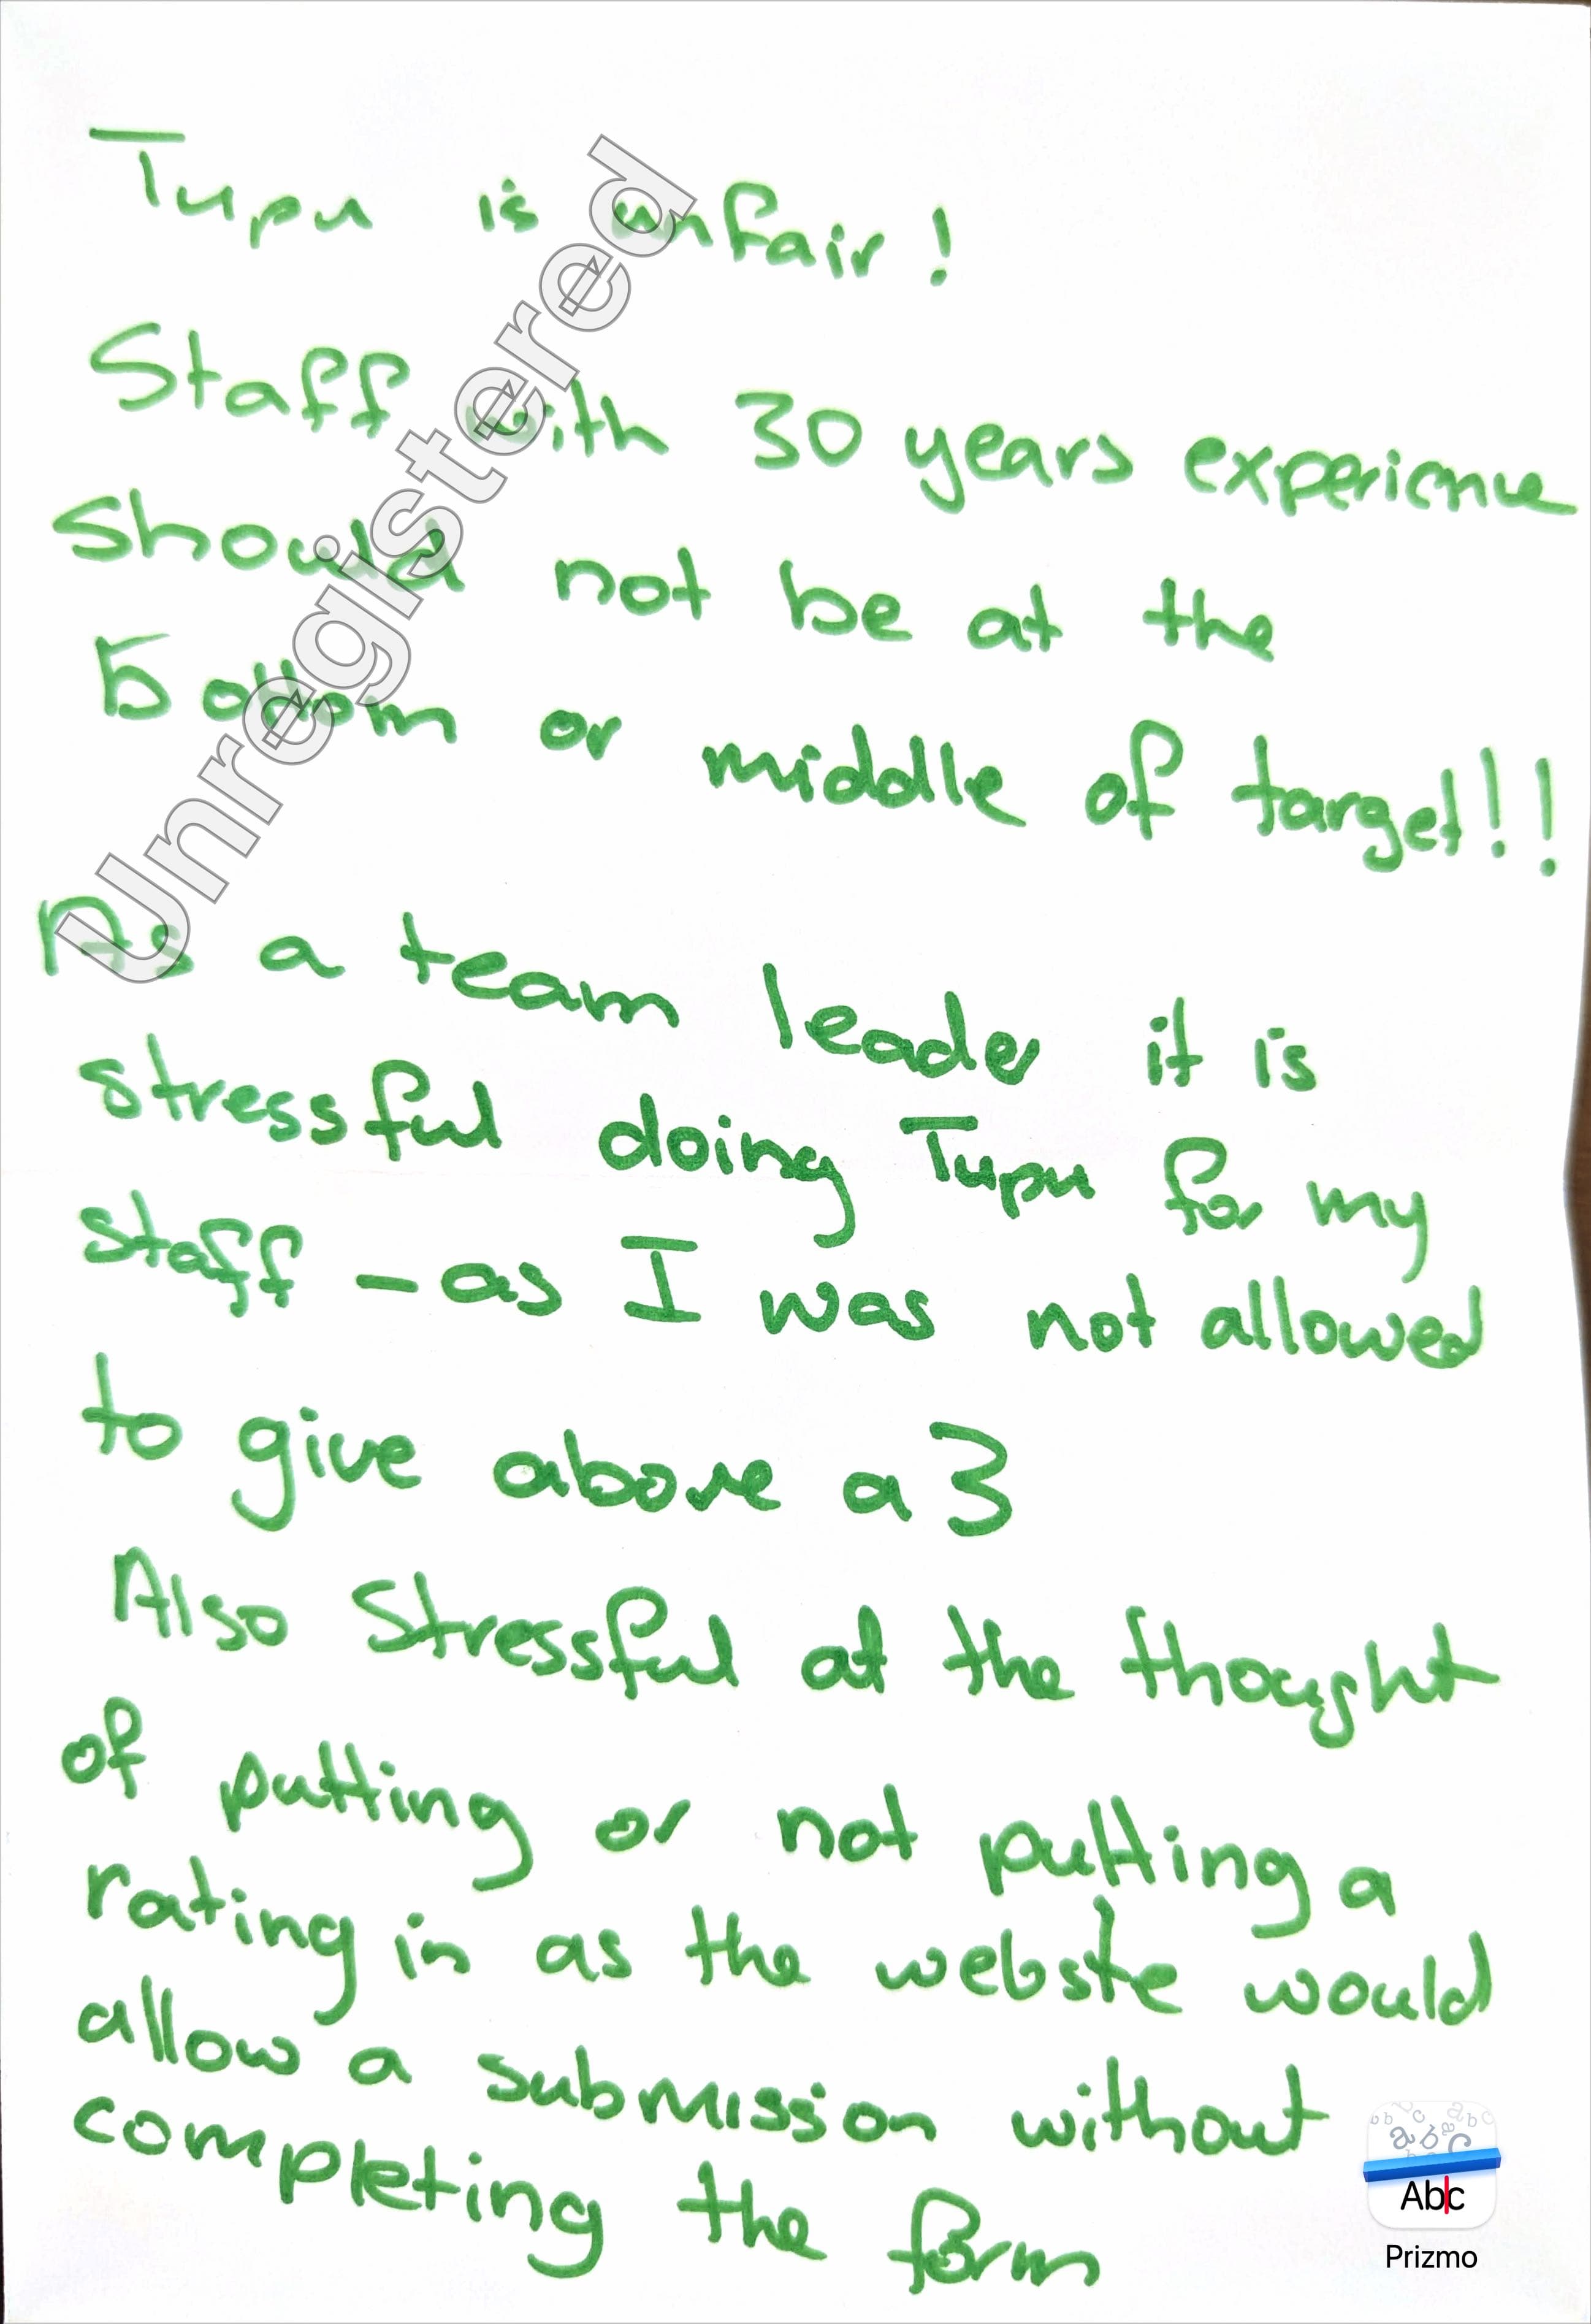 Tupu is unfair!
Staff with 30 years experience
should not be at the
Bottom or middle of target!!!
As a team leader it is
stressful doing Tupu for my
staff - as I was not allowed
to give above a 3
Also stressful at the thought
of putting or not putting a
rating in as the website would
allow a submission without
completing the form
Unregistered
Abc
Prizmo